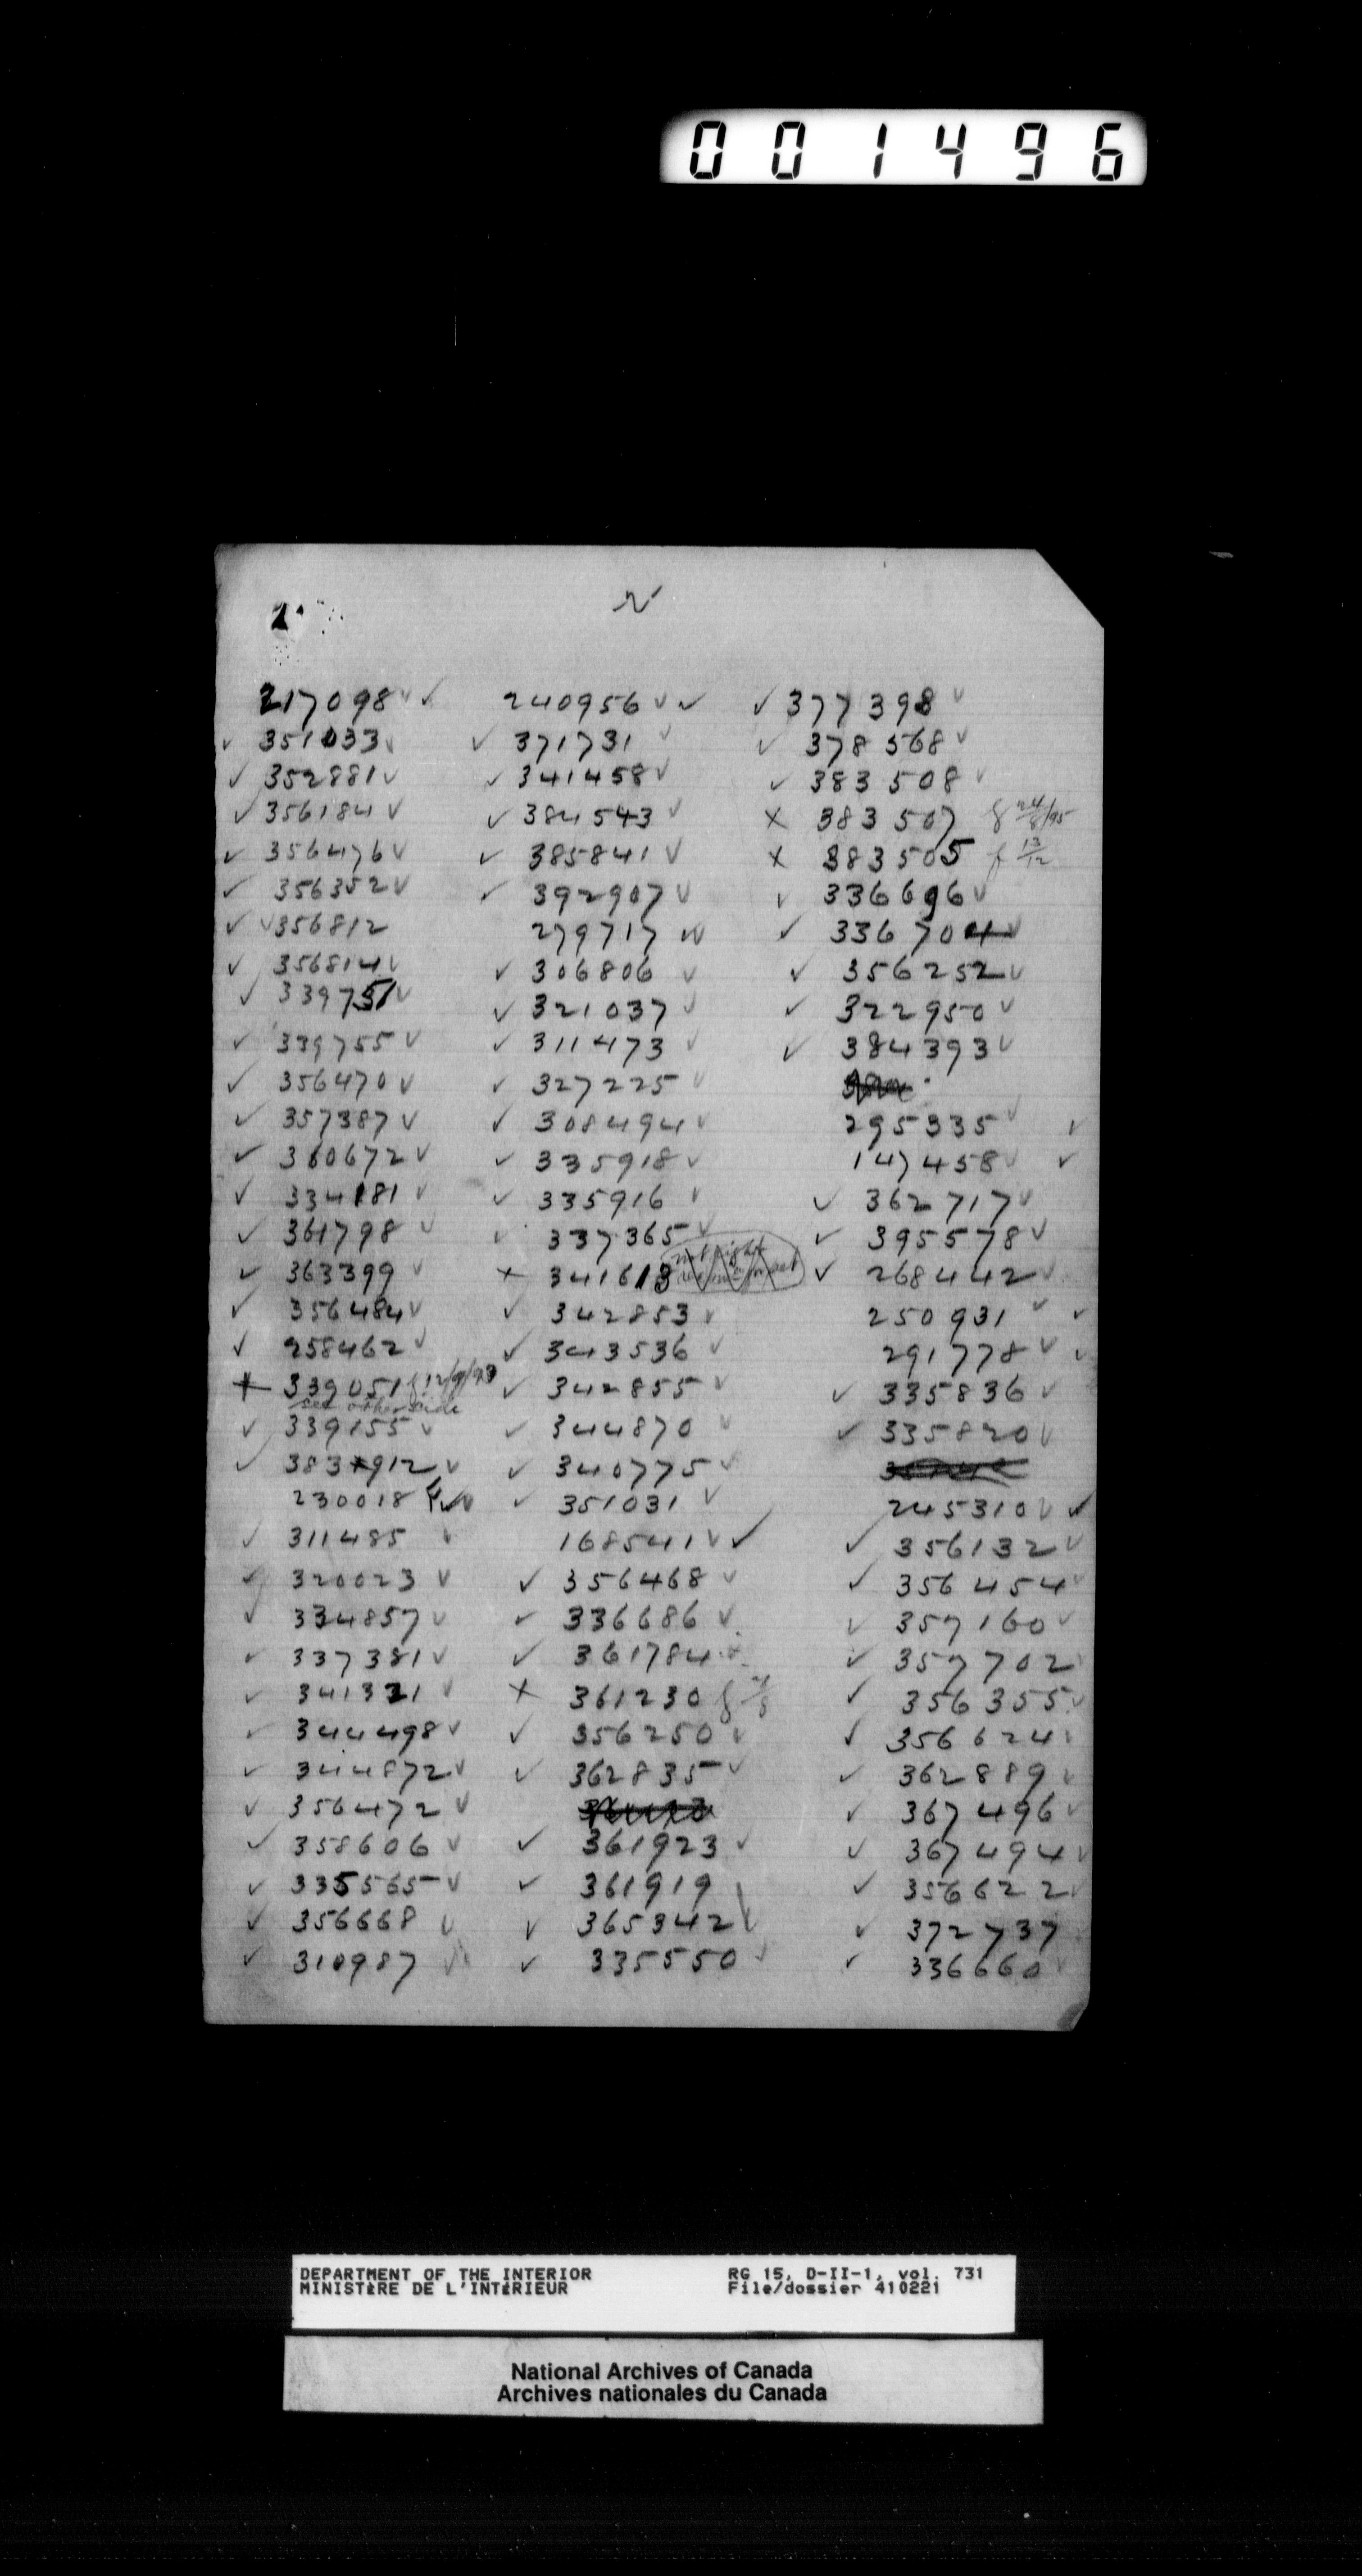 001496
2
217098 ✓ ✓ 240956 ✓ ✓ ✓ 377398 ✓
✓ 351033 ✓ ✓ 371731 ✓ ✓ 378568 ✓
✓ 352881 ✓ ✓ 341458 ✓ ✓ 383508 ✓
✓ 356184 ✓ ✓ 384543 ✓ × 383507 f 24/8/95
✓ 356476 ✓ ✓ 385841 ✓ × 383505 f 13/12
✓ 356352 ✓ ✓ 392907 ✓ ✓ 336696 ✓
✓ ✓ 356812 279717 ✓✓ ✓ 336704 ✓
✓ 356814 ✓ ✓ 306806 ✓ ✓ 356252 ✓
✓ 339751 ✓ ✓ 321037 ✓ ✓ 322950 ✓
✓ 339755 ✓ ✓ 311473 ✓ ✓ 384393 ✓
✓ 356470 ✓ ✓ 327225 ✓
✓ 357387 ✓ ✓ 308494 ✓ 295335 ✓ ✓
✓ 360672 ✓ ✓ 335918 ✓ 147458 ✓ ✓
✓ 334181 ✓ ✓ 335916 ✓ ✓ 362717 ✓
✓ 361798 ✓ ✓ 337365 ✓ ✓ 395578 ✓
✓ 363399 ✓ × 341618 not right ✓ 268442 ✓
✓ 356484 ✓ ✓ 342853 ✓ 250931 ✓ ✓
✓ 258462 ✓ ✓ 343536 ✓ 291778 ✓ ✓
× 339051 f 12/9/93 ✓ 342855 ✓ ✓ 335836 ✓
see other side
✓ 339155 ✓ ✓ 344870 ✓ ✓ 335820 ✓
✓ 383912 ✓ ✓ 340775 ✓
230018 ✓✓ ✓ 351031 ✓ 245310 ✓ ✓
✓ 311485 ✓ 168541 ✓ ✓ ✓ 356132 ✓
✓ 320023 ✓ ✓ 356468 ✓ ✓ 356454 ✓
✓ 334857 ✓ ✓ 336686 ✓ ✓ 357160 ✓
✓ 337381 ✓ ✓ 361784 ✓ ✓ 357702 ✓
✓ 341321 ✓ × 361230 f ✓ 356355 ✓
✓ 344498 ✓ ✓ 356250 ✓ ✓ 356624 ✓
✓ 344872 ✓ ✓ 362835 ✓ ✓ 362889 ✓
✓ 356472 ✓ ✓ 367496 ✓
✓ 358606 ✓ ✓ 361923 ✓ ✓ 367494 ✓
✓ 335565 ✓ ✓ 361919 ✓ 356622 ✓
✓ 356668 ✓ ✓ 365342 ✓ ✓ 372737
✓ 310987 ✓ ✓ 335550 ✓ ✓ 336660 ✓
DEPARTMENT OF THE INTERIOR RG 15, D-II-1, vol. 731
MINISTÈRE DE L'INTÉRIEUR File/dossier 410221
National Archives of Canada
Archives nationales du Canada